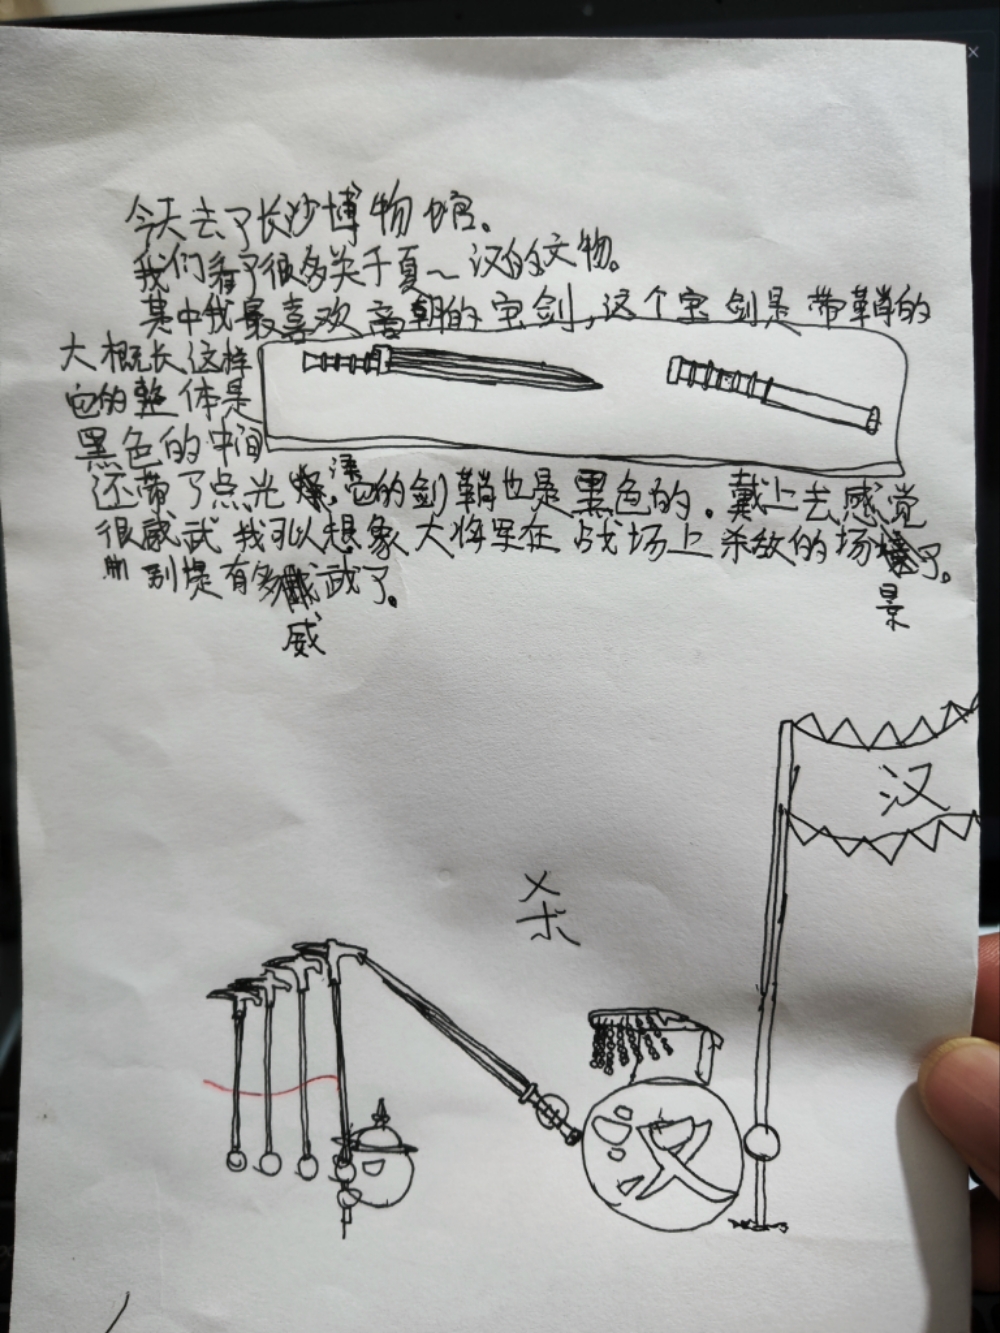 今天去了长沙博物馆。
我们看了很多关于夏~汉的文物。
其中我最喜欢商朝的宝剑，这个宝剑是带鞘的
大概长这样
它的整体是
黑色的中间
还带了点光泽，它的剑鞘也是黑色的。戴上去感觉
很威武 我可以想象大将军在战场上杀敌的场景了。
别提有多威武了。
汉
杀
汉